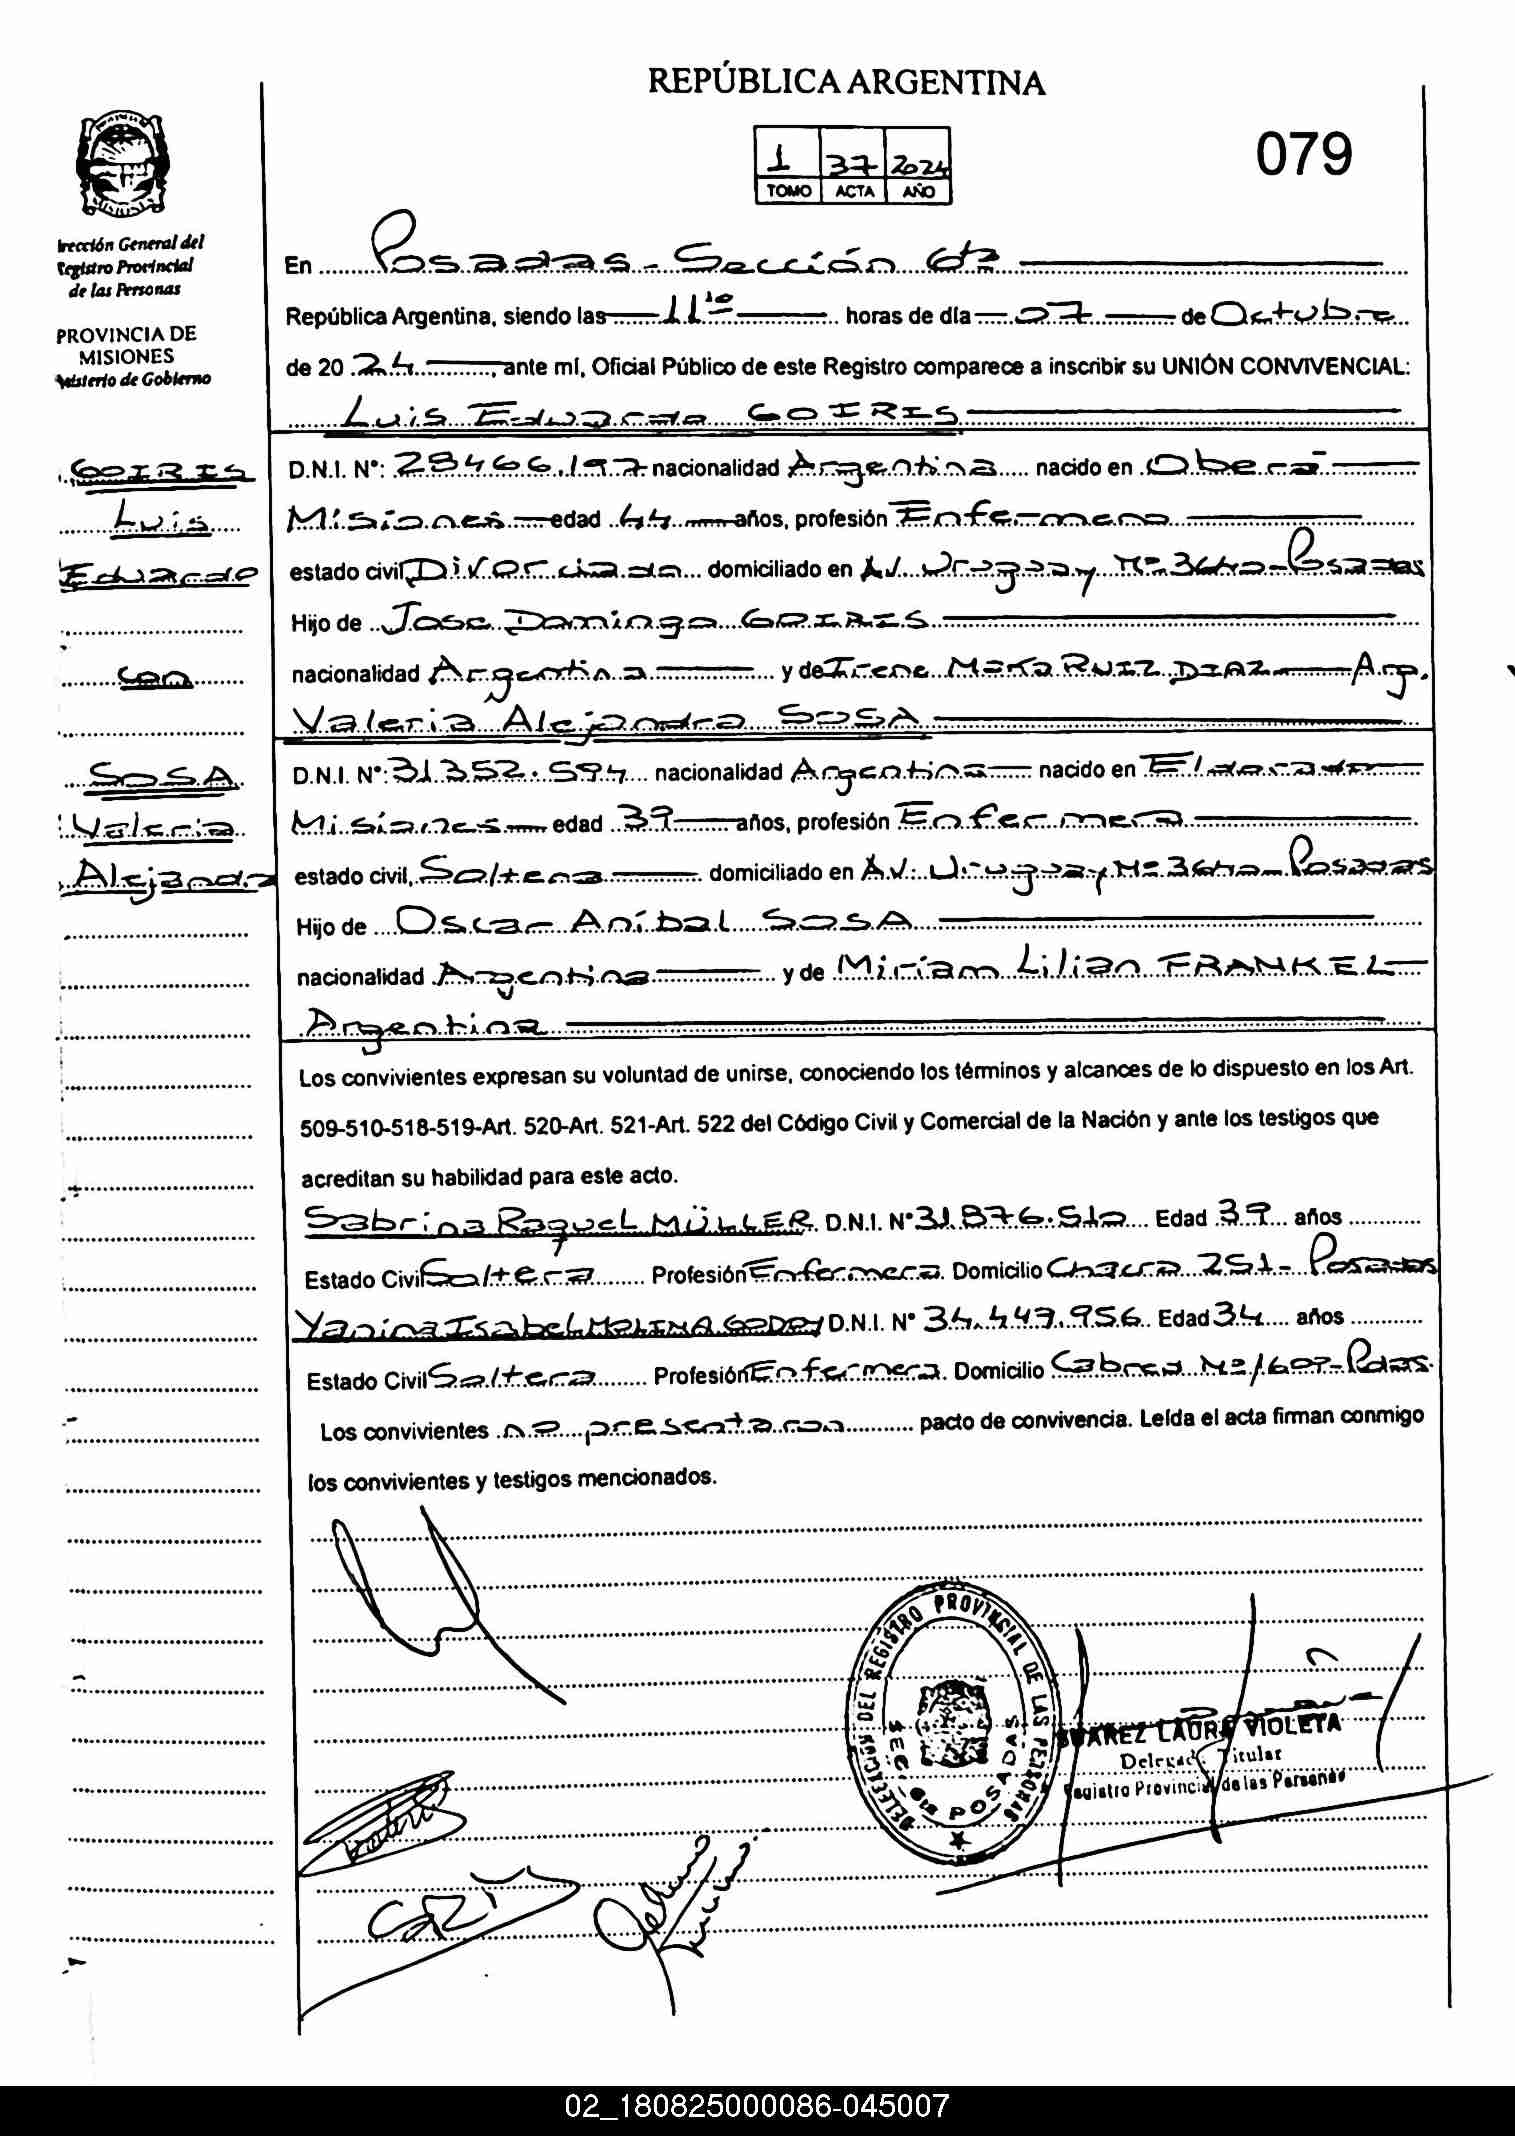 REPÚBLICA ARGENTINA
1 37 2024
TOMO ACTA AÑO
079
irección General del
Registro Provincial
de las Personas
PROVINCIA DE
MISIONES
Ministerio de Gobierno
En Posadas - Sección 6ta
República Argentina, siendo las 11:10 horas de día 07 de Octubre
de 20 24, ante mí, Oficial Público de este Registro comparece a inscribir su UNIÓN CONVIVENCIAL:
Luis Eduardo GOIRIS
GOIRIS
Luis
Eduardo
con
SOSA
Valeria
Alejandra
D.N.I. N°: 28466.197 nacionalidad Argentina nacido en Oberá
Misiones edad 44 años, profesión Enfermero
estado civil Divorciado domiciliado en Av. Uruguay Nº 3640 - Posadas
Hijo de Jose Domingo GOIRIS
nacionalidad Argentina y de Irene RUIZ DIAZ Arg.
Valeria Alejandra SOSA
D.N.I. N°: 31.352.594 nacionalidad Argentina nacido en Eldorado
Misiones edad 39 años, profesión Enfermera
estado civil, Soltera domiciliado en Av. Uruguay Nº 3640 - Posadas
Hijo de Oscar Aníbal SOSA
nacionalidad Argentina y de Miriam Lilian FRANKEL
Argentina
Los convivientes expresan su voluntad de unirse, conociendo los términos y alcances de lo dispuesto en los Art.
509-510-518-519-Art. 520-Art. 521-Art. 522 del Código Civil y Comercial de la Nación y ante los testigos que
acreditan su habilidad para este acto.
Sabrina Raquel MÜLLER D.N.I. N° 31.876.510 Edad 39 años
Estado Civil Soltera Profesión Enfermera. Domicilio Chacra 251 - Posadas
Yanina Isabel MOLINA GODOY D.N.I. N° 34.447.956 Edad 34 años
Estado Civil Soltera Profesión Enfermera. Domicilio Cabred Nº 1607 - Pdas.
Los convivientes no presentaron pacto de convivencia. Leída el acta firman conmigo
los convivientes y testigos mencionados.
DELEGACION DEL REGISTRO PROVINCIAL DE LAS PERSONAS
SEC. 6ta POSADAS
SUAREZ LAURA VIOLETA
Delegada Titular
Registro Provincial de las Personas
02_180825000086-045007